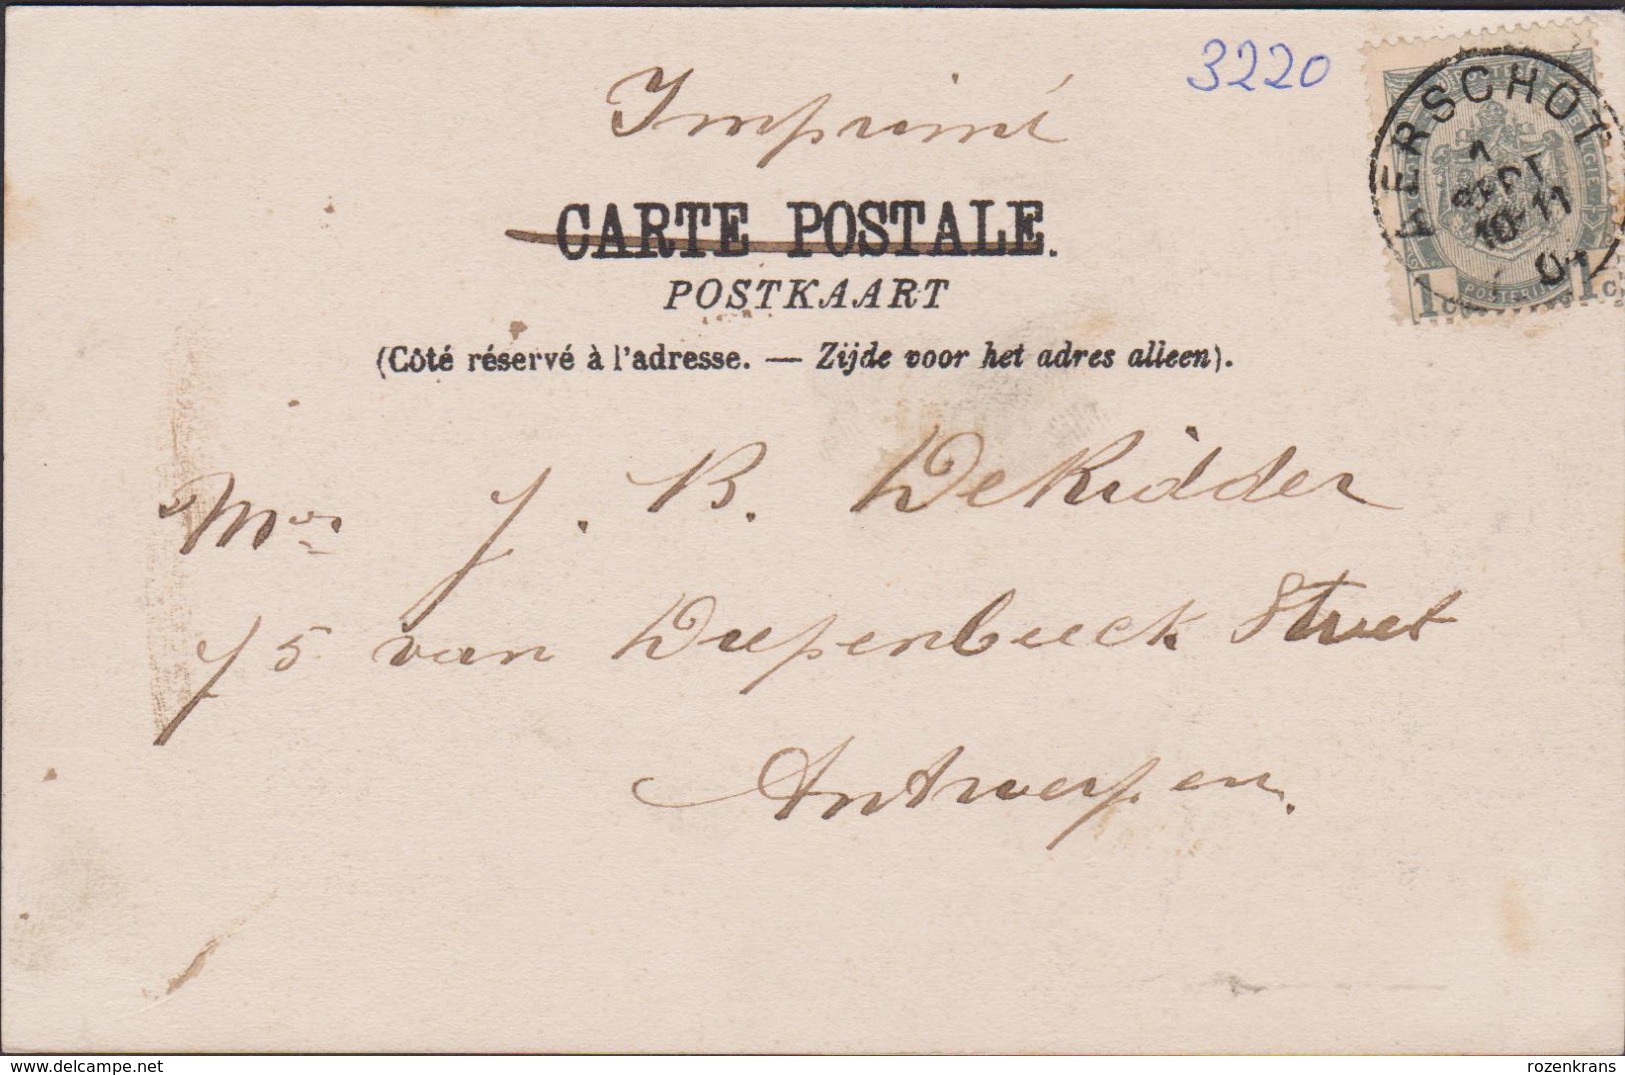 3220
Imprimé
CARTE POSTALE.
POSTKAART
(Côté réservé à l'adresse. — Zijde voor het adres alleen).
AERSCHOT
1
SEPT
10-11
04
1c 1c
POSTERIJ
J. B. DeRidder
75 van Diepenbeeck Street
Antwerpen.
rozenkrans